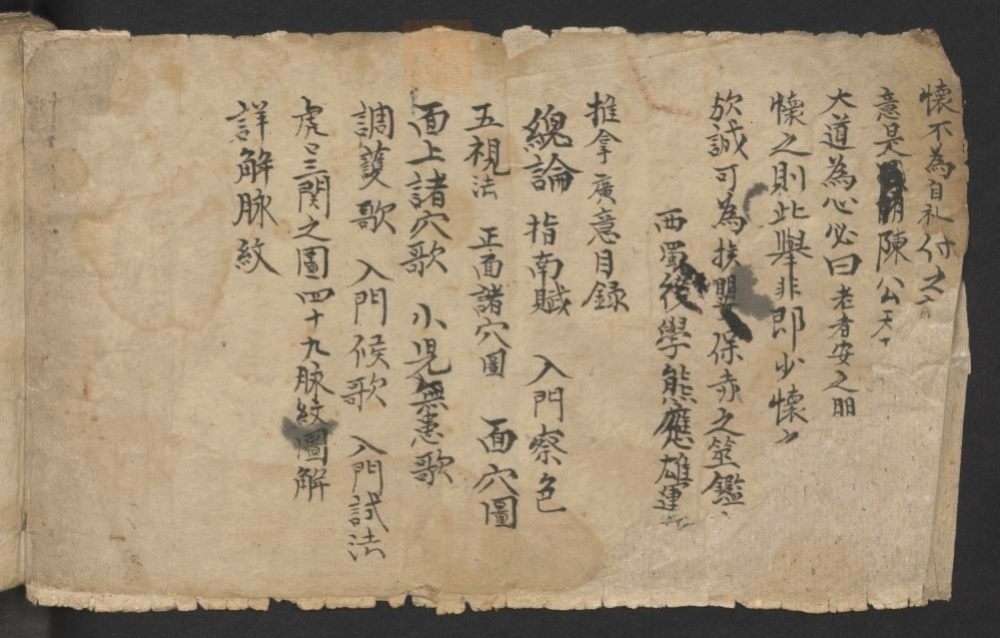 懷不為自礼付之
意是陳公天下
大道為心必曰老者安之朋
懷之則此舉非即少懷之
欤誠可為孩嬰保赤之筮鑑
西蜀後學熊應雄運
推拿廣意目録
總論 指南賦 入門察色
五視法 正面諸穴圖 面穴圖
面上諸穴歌 小児無患歌
調護歌 入門候歌 入門試法
虎口三関之圖四十九脉紋圖解
詳解脉紋